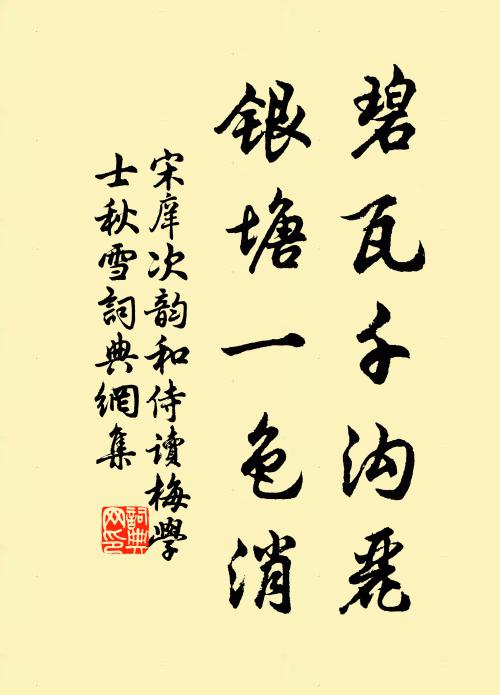 碧瓦千沟丽
银塘一色消
宋庠次韵和侍读梅学
士秋雪詞典網集
詞典网印